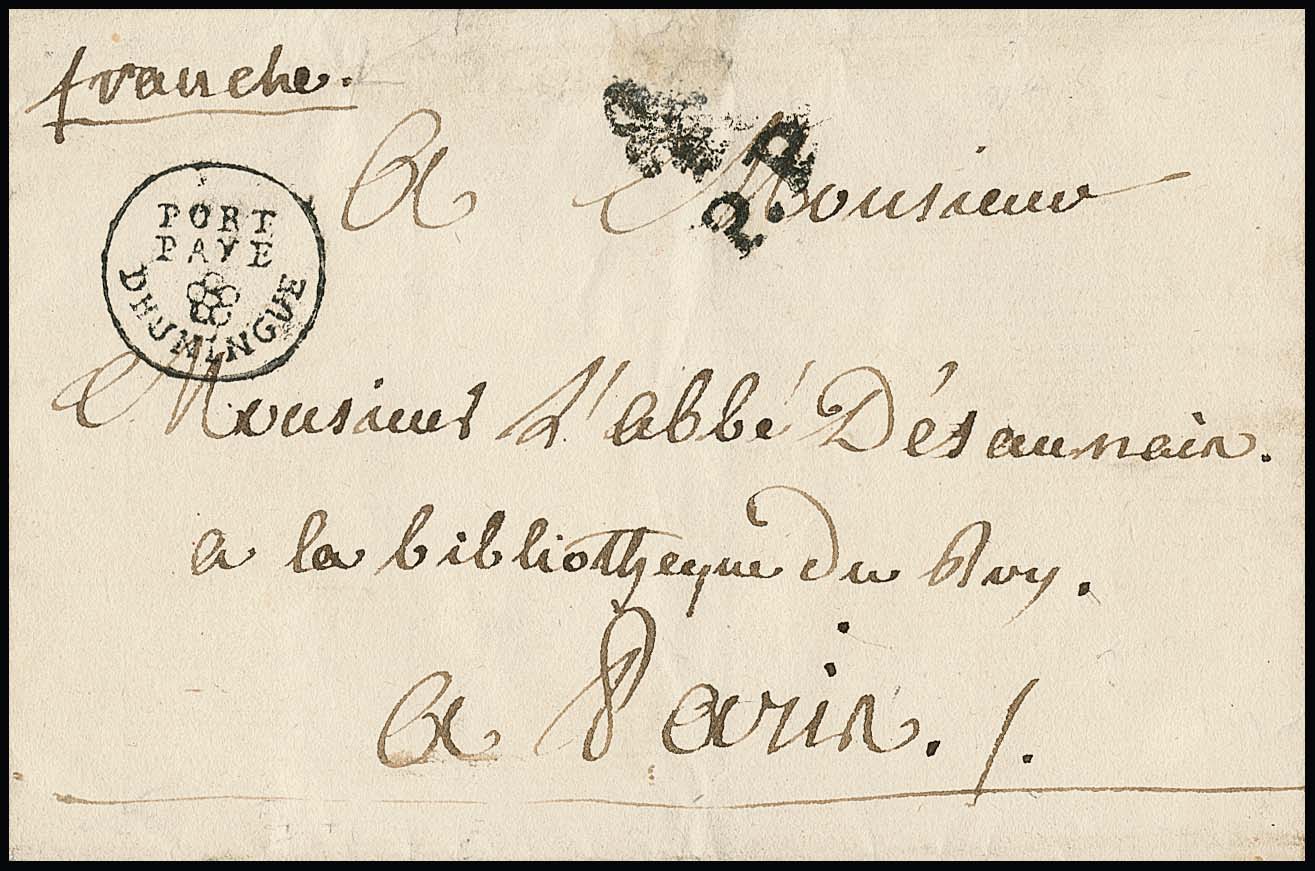 franche.
P.P.
A Monsieur
PORT
PAYE
DHUNINGUE
Monsieur L'abbé Désaunais.
a la bibliotheque du Roy.
a Paris. /.